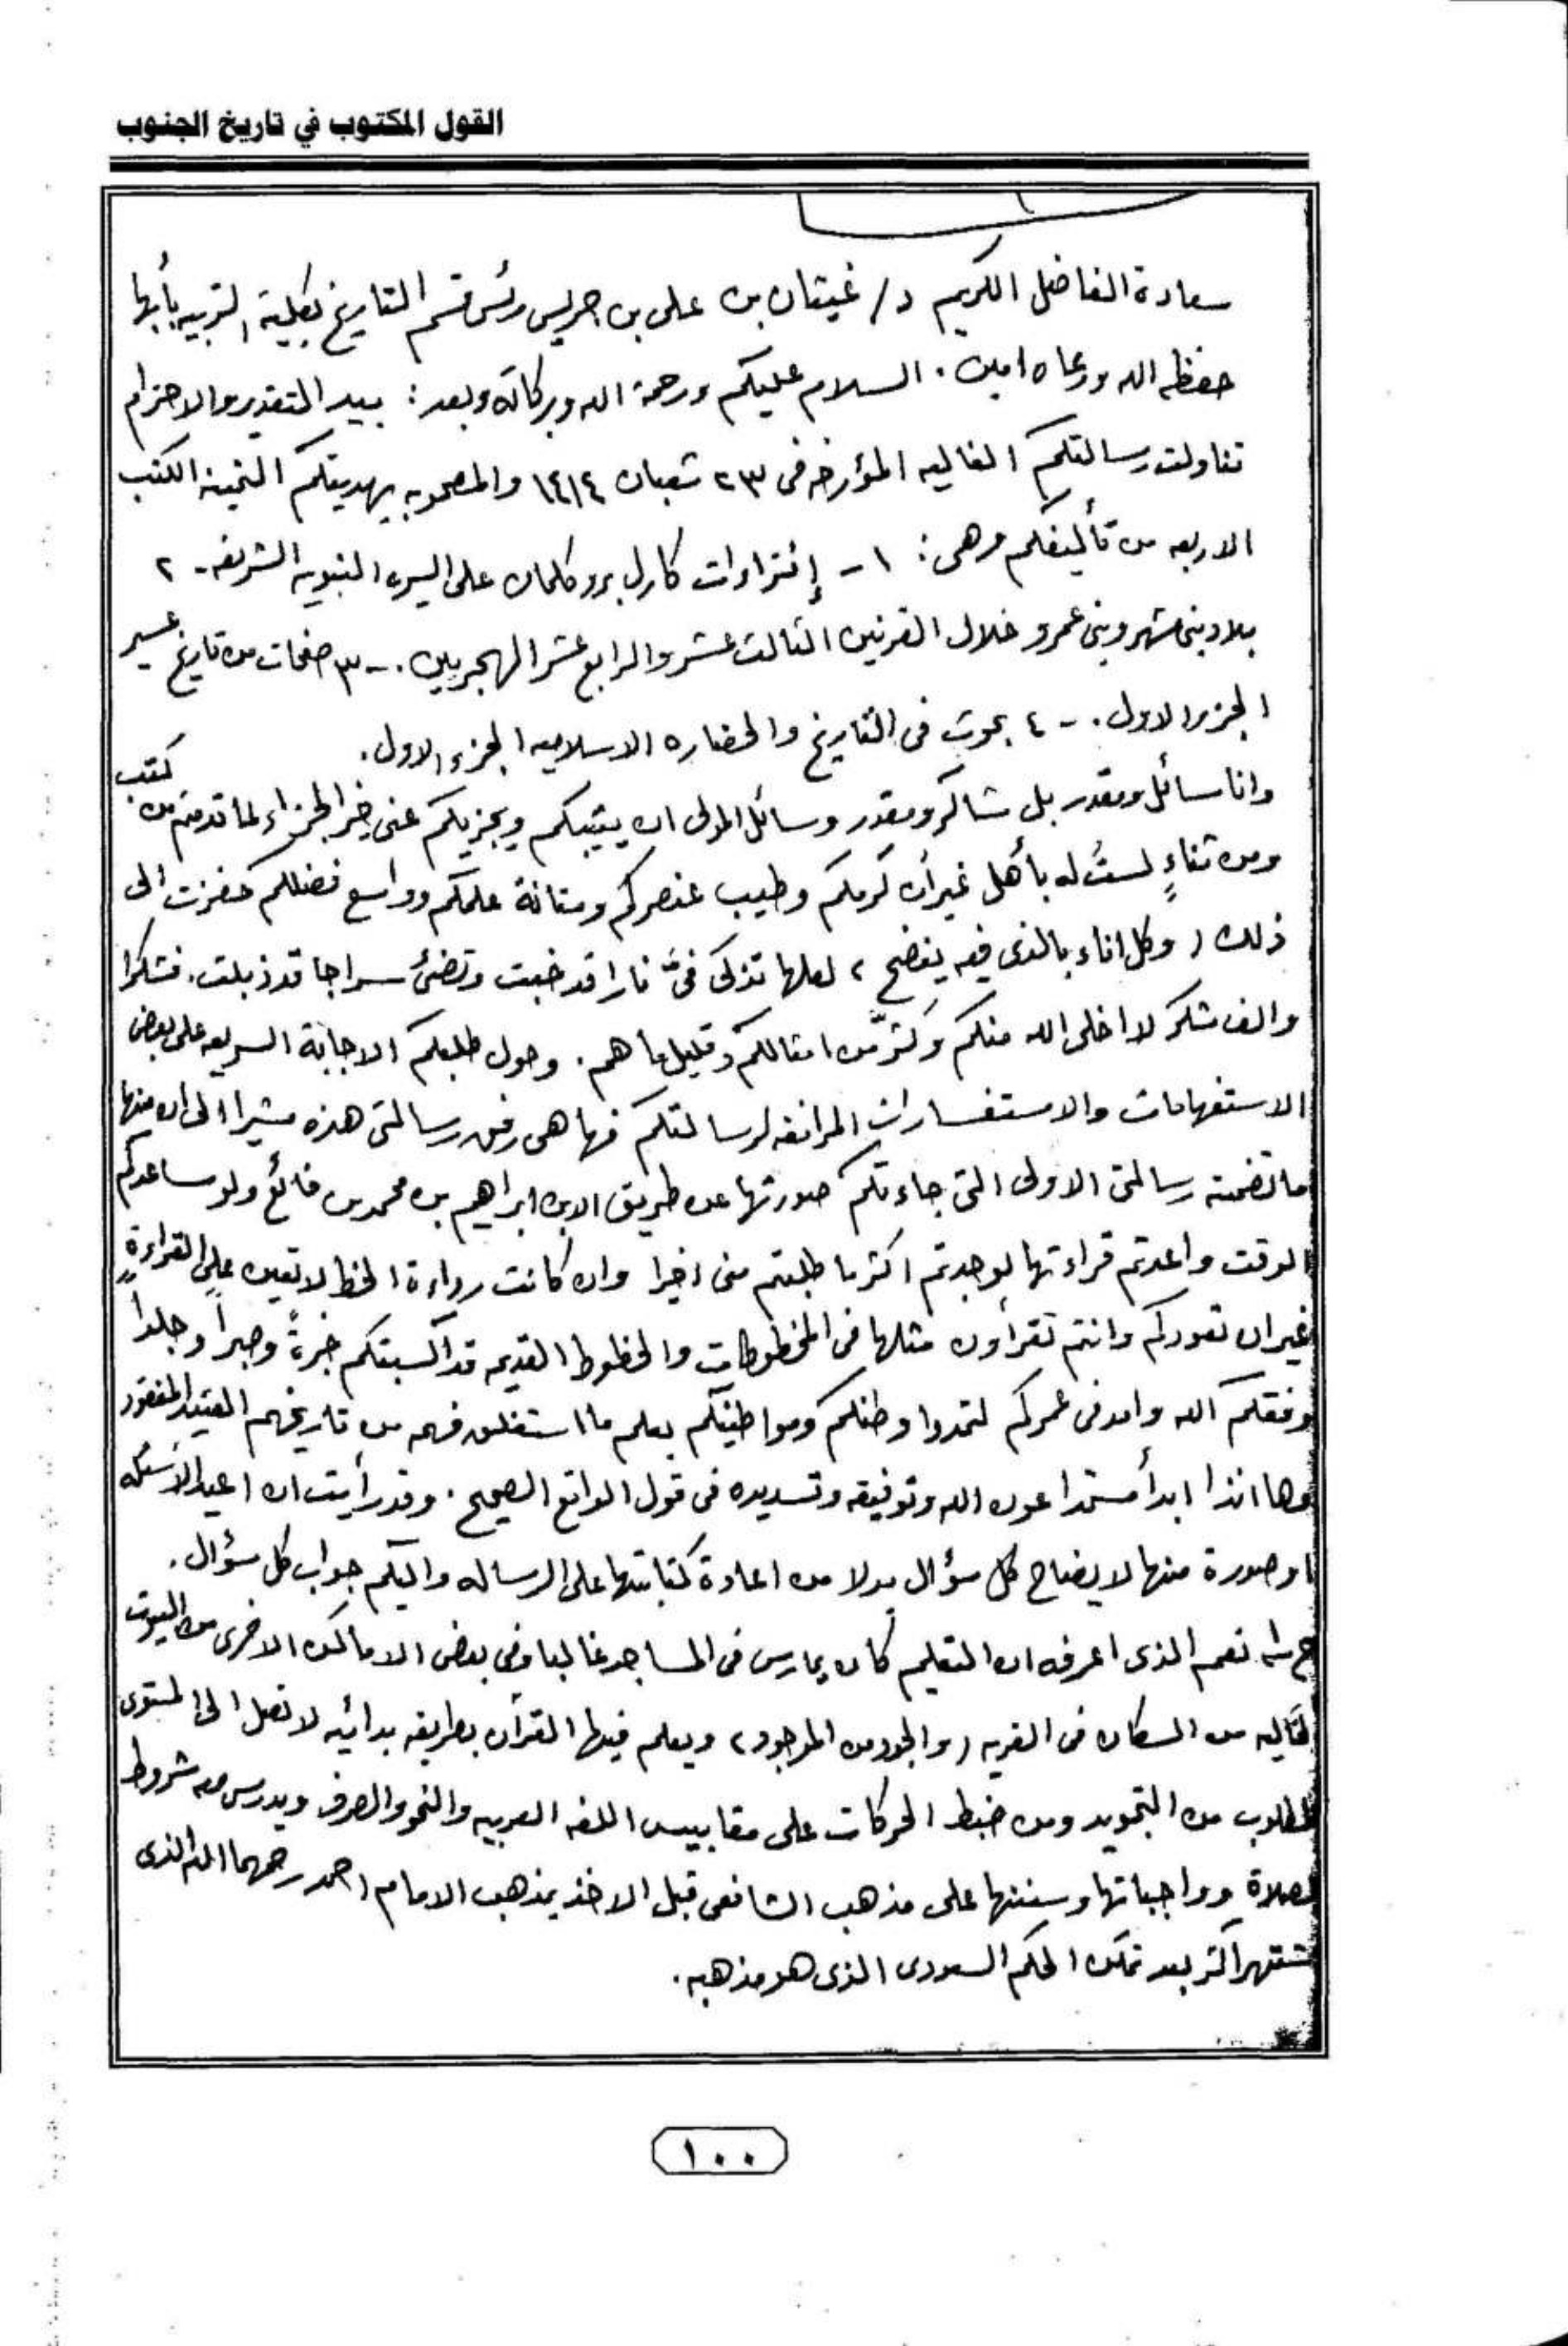 القول المكتوب في تاريخ الجنوب
سعادة الفاضل الكريم د/ غيثان بن علي بن جريس رئس قسم التاريخ بكلية التربيه بأبها
حفظه الله ورعاه امين. السلام عليكم ورحمة الله وبركاته وبعد: بيد التقدير والاحترام
تناولت رسالتكم الغاليه المؤرخه في ٢٣ شعبان ١٤١٤ والمصحوبه بهديتكم الثمينه الكتب
الاربعه من تأليفكم وهي: ١- إفتراءات كارل بروكلمان على السيره النبويه الشريفه - ٢
بلاد بني شهر وبني عمرو خلال القرنين الثالث عشر والرابع عشر الهجريين. - ٣ صفحات من تاريخ عسير
الجزء الاول. - ٤ بحوث في التاريخ والحضاره الاسلاميه الجزء الاول.
وانا سائل ومقدر بل شاكر ومقدر وسائل المولى ان يثيبكم ويجزيكم عني خير الجزاء لما قدمتم من كتب
ومن ثناءٍ لستُ له بأهل غير أن كرمكم وطيب عنصركم ومتانة علمكم وواسع فضلكم حفزت الى
ذلك (وكل اناء بالذي فيه ينضح) لعلها تذكي فيَّ نارا قد خبت وتضئ سراجا قد ذبلت. فشكرا
والف شكر لا اخلى الله منكم وكثّر من امثالكم وقليل ما هم. وحول طلبكم الاجابة السريعه على بعض
الاستفهامات والاستفسارات المرافقه لرسالتكم فها هي رفق رسالتي هذه مشيرا الى ان منها
ما تضمنته رسالتي الاولى التي جاءتكم صورتها عن طريق الابن ابراهيم بن محمد بن فائع ولو ساعدكم
الوقت واعدتم قراءتها لوجدتم اكثر ما طلبتم مني اخيرا وان كانت رداءة الخط لا تعين على القراءةِ
غير ان تعودكم وانتم تقرأون مثلها في المخطوطات والخطوط القديمه قد اكسبتكم خبرةً وصبراً وجلداً
وفقكم الله وامد في عمركم لتمدوا وطنكم ومواطنيكم بعلم ما استغلق فهمه من تاريخهم العتيد المفقود
وها انذا ابدأ مستمدا عون الله وتوفيقه وتسديده في قول الواقع الصحيح. وقد رأيت ان اعيد الأسئله
او صورة منها لايضاح كل سؤال بدلا من اعادة كتابتها على الرساله واليكم جواب كل سؤال.
ج١ نعم الذي اعرفه ان التعليم كان يمارس في المساجد غالبا وفي بعض الاماكن الاخرى من البيوت
الخاليه من السكان في القريه (والجود من الموجود) ويعلم فيها القرآن بطريقه بدائيه لا تصل الى المستوى
المطلوب من التجويد ومن ضبط الحركات على مقاييس اللغه العربيه والنحو والصرف ويدرس من شروط
الصلاة وواجباتها وسننها على مذهب الشافعي قبل الاخذ بمذهب الامام احمد رحمهما الله الذي
اشتهر اكثر بعد تمكن الحكم السعودي الذي هو مذهبه.
١٠٠